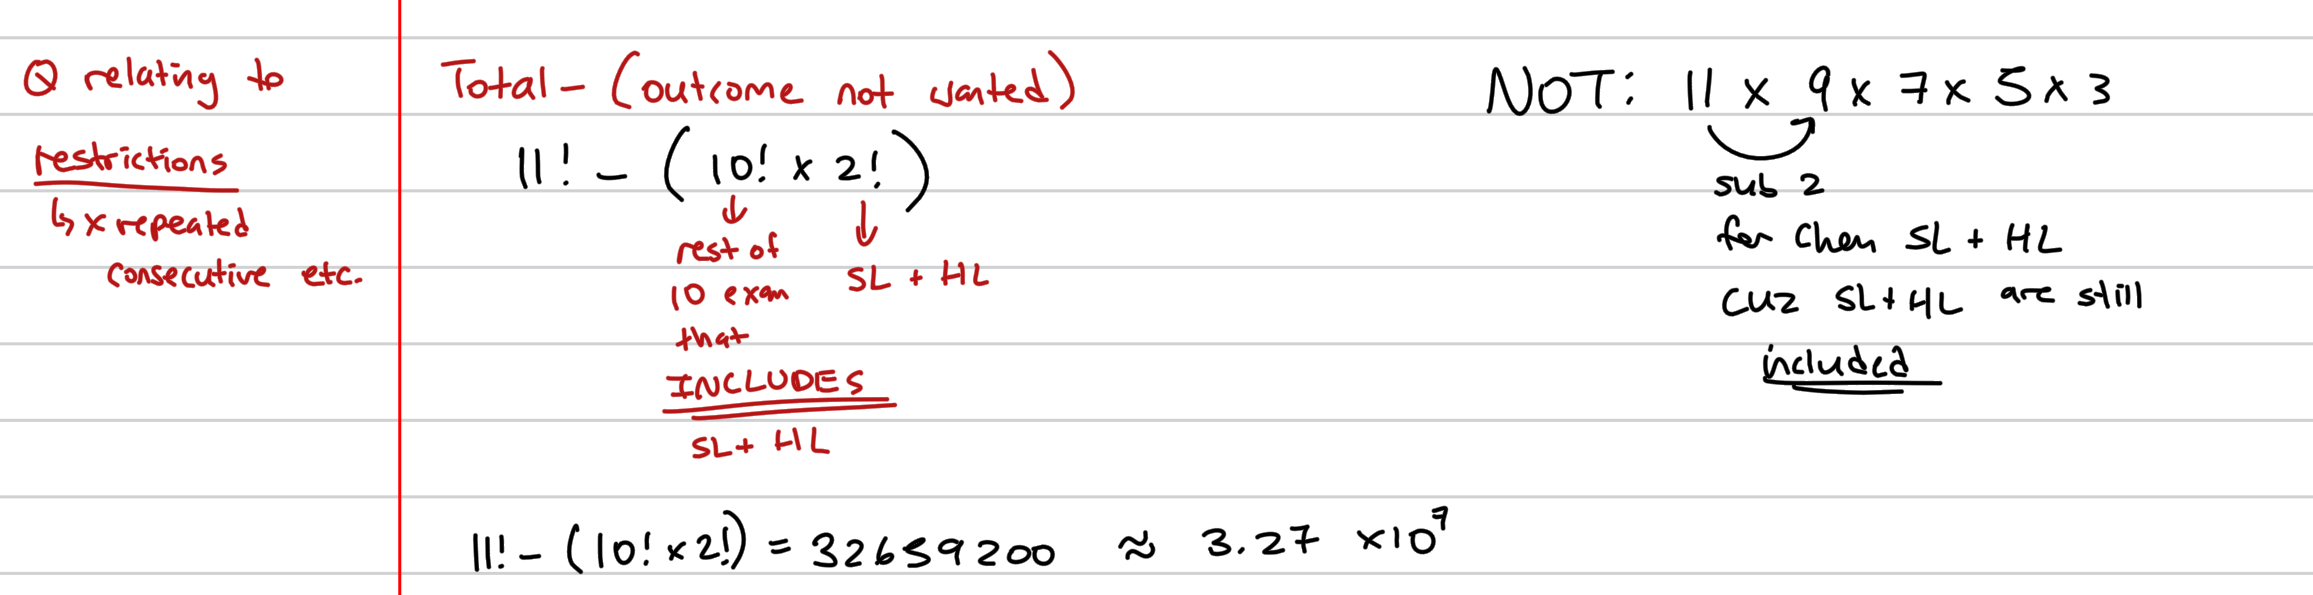 Q relating to
restrictions
↳ x repeated
consecutive etc.
Total - (outcome not wanted)
11! - (10! x 2!)
↓ ↓
rest of
10 exam
that
INCLUDES
SL + HL
SL + HL
11! - (10! x 2!) = 32659200 ≈ 3.27 x10⁷
NOT: 11 x 9 x 7 x 5 x 3
sub 2
for Chem SL + HL
cuz SL + HL are still
included